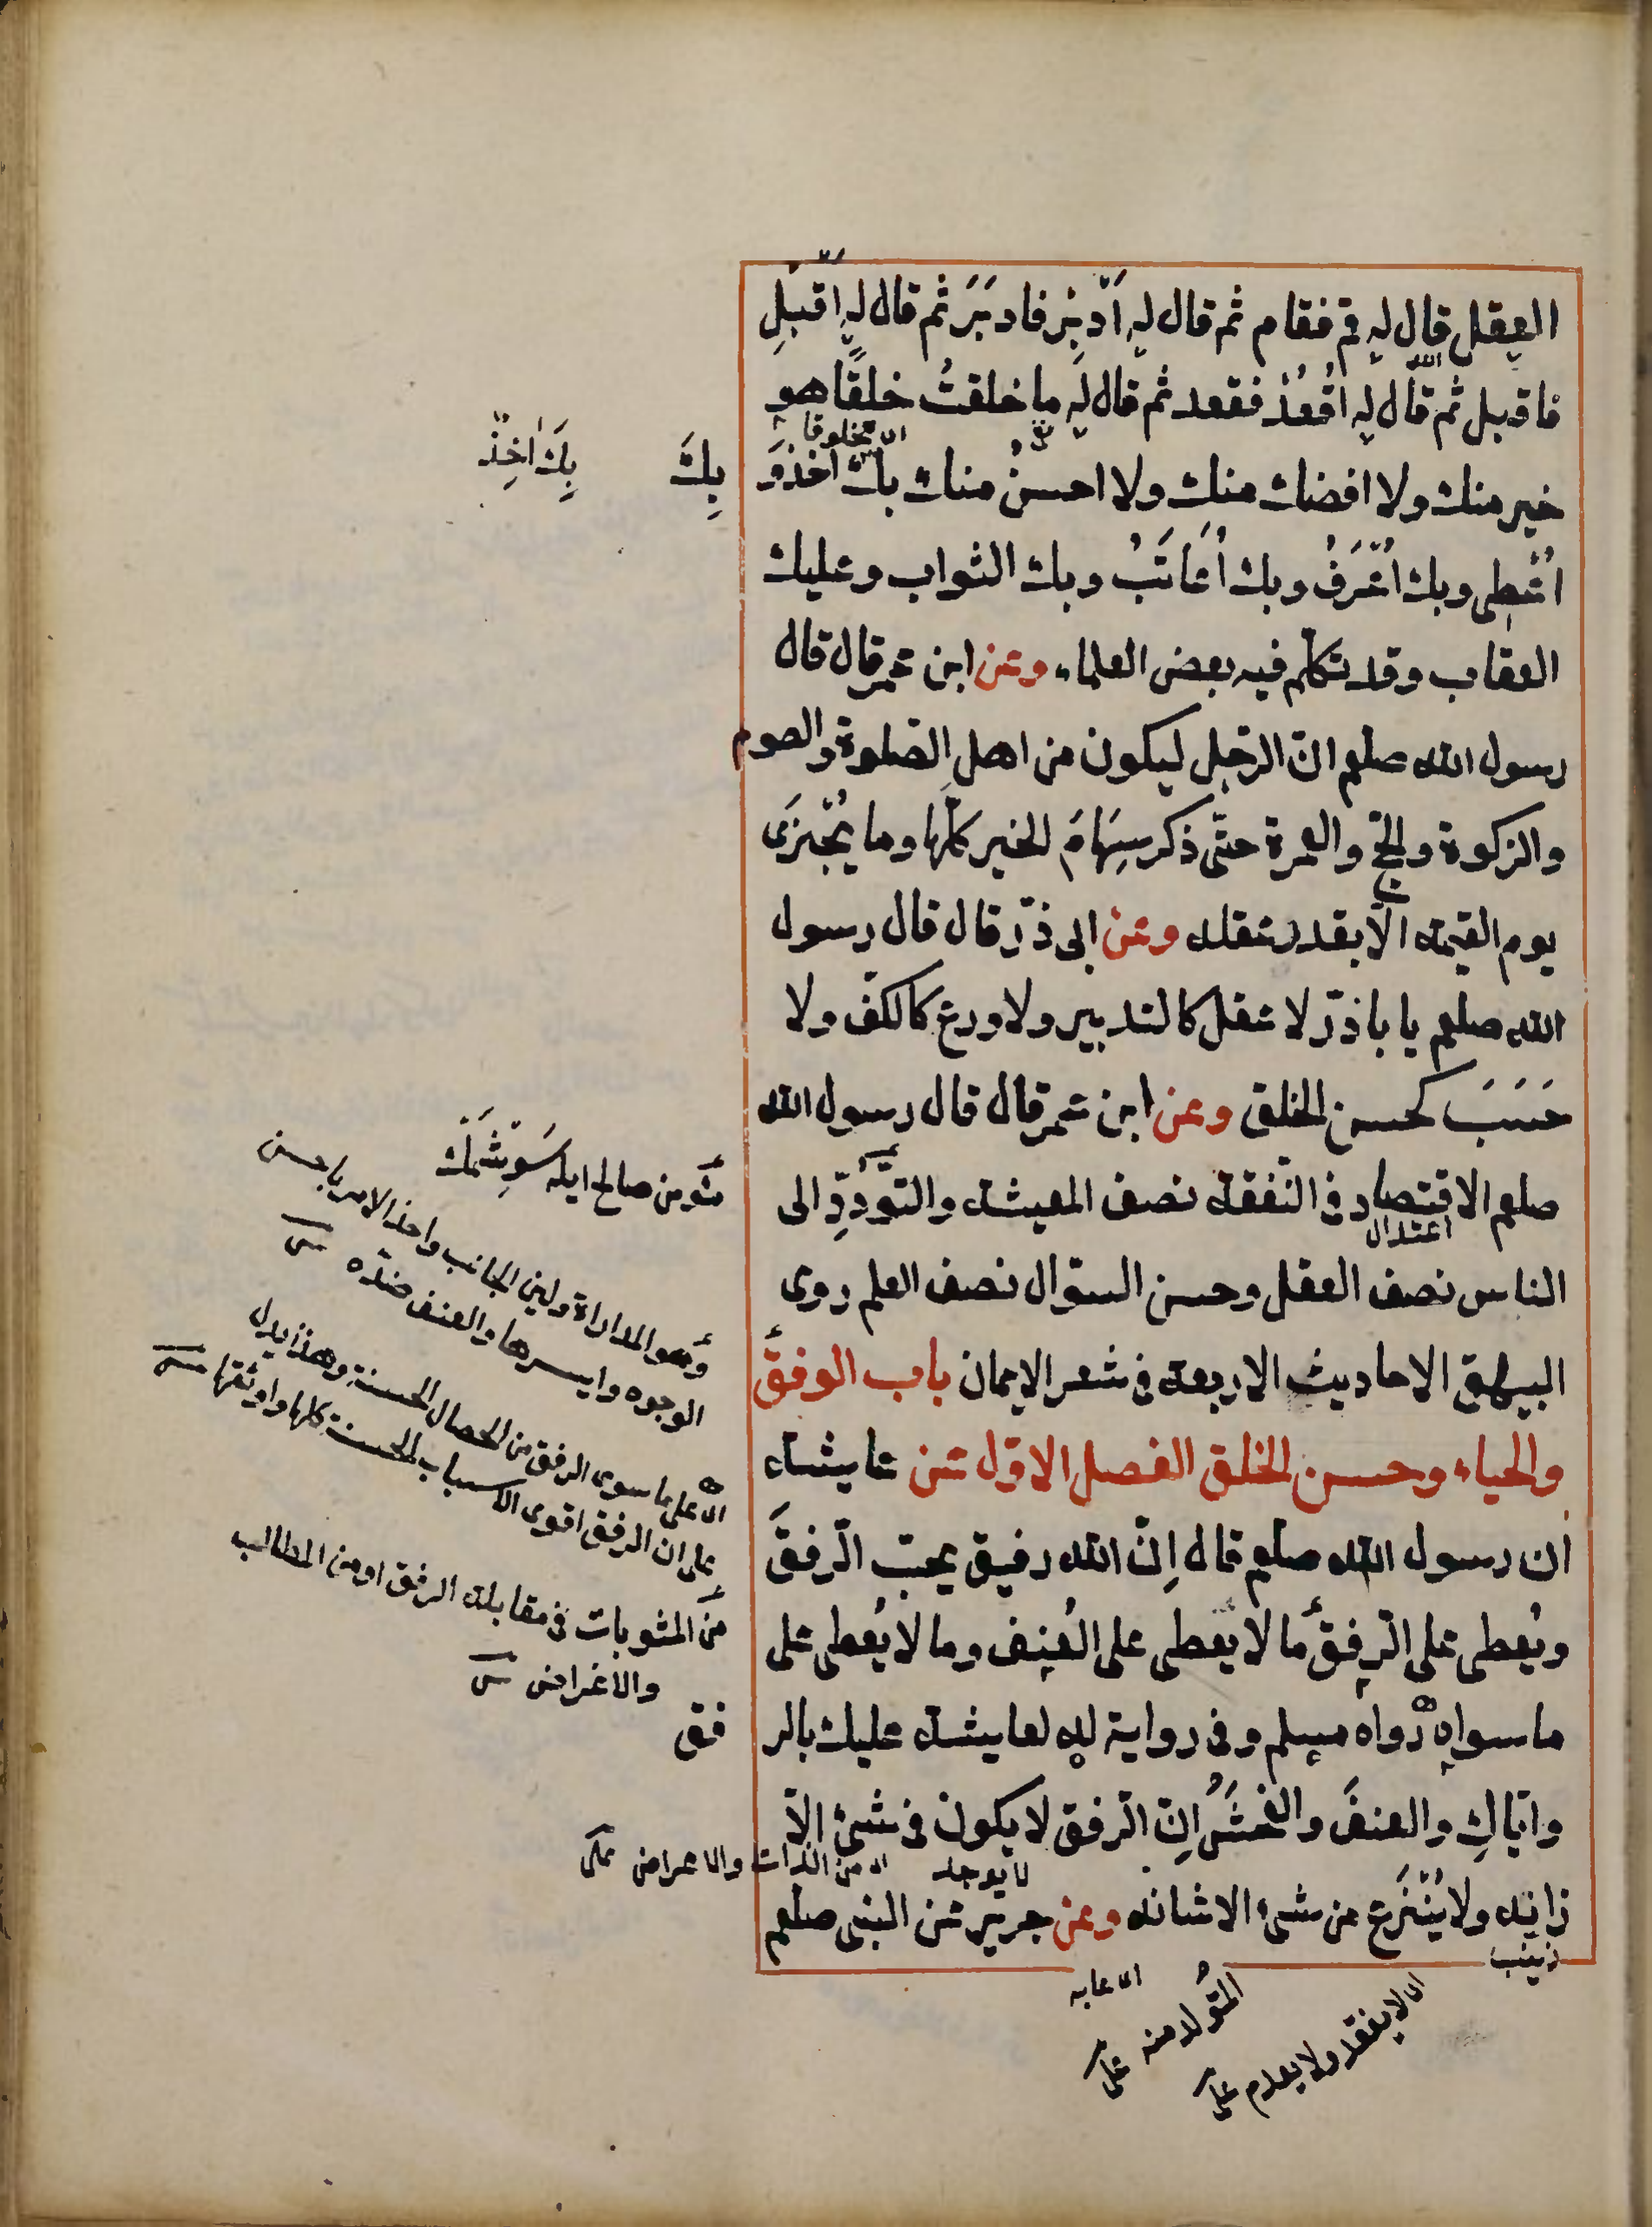 العقل قال له قم فقام ثم قال له أَدْبِر فادبَرَ ثم قال له اقبل
فاقبل ثم قال له اُقْعُدْ فقعد ثم قال له ما خلقتُ خلقًا هو
خير منك ولا افضل منك ولا احسنُ منك بك اخذ و
اُعْطى وبك اُعْرَفُ وبك اُعَاتَبُ وبك الثواب وعليك
العقاب وقد تكلّم فيه بعض العلماء وعن ابن عمر قال قال
رسول الله صلعم انّ الرّجل ليكون من اهل الصّلوة والصوم
والزكوة والحجّ والعمرة حتّى ذكر سِهَامَ الخير كلّها وما يُجْزَى
يوم القيمة الّا بقدر عقله وعن ابى ذرّ قال قال رسول
الله صلعم يا باذرّ لا عقل كالتدبير ولا ورع كالكفّ ولا
حَسَبَ كحسن الخلق وعن ابن عمر قال قال رسول الله
صلعم الاقتصاد فى النّفقة نصف المعيشة والتّودّدِ الى
اعتدال
الناس نصف العقل وحسن السّوال نصف العلم روى
البيهقى الاحاديث الاربعة فى شعر الايمان باب الوفق
والحياء وحسن الخلق الفصل الاوّل عن عايشة
ان رسول الله صلعم قال اِنّ الله رفيق يحبّ الرّفقَ
ويُعطى على الرّفق ما لا يعطى على العُنِف وما لا يُعطى على
ما سواه رواه مسلم وفى رواية له لعايشة عليك بالر
فق
وايّاكِ والعنفَ والفحشَ اِنّ الرّفق لا يكون فى شئ الّا
لا يوجد من الذات والاعراض
زانه ولا يُنْزَع من شئ الا شانه وعن جرير عن النبى صلعم
زينب
اى عابه
اى لا يفقد ولا يعدم
المتولد منه
بِكَ
بِكَ اٰخِذ
وهو المداراة ولين الجانب واخذ الامر باحسن
الوجوه وايسرها والعنف ضدّه
اى على ما سوى الرفق من الخصال الحسنة وهذا يدل
على ان الرفق اقوى الاسباب الحسنة كلها واوثقها
من المثوبات فى مقابلة الرفق او من المطالب
والاغراض